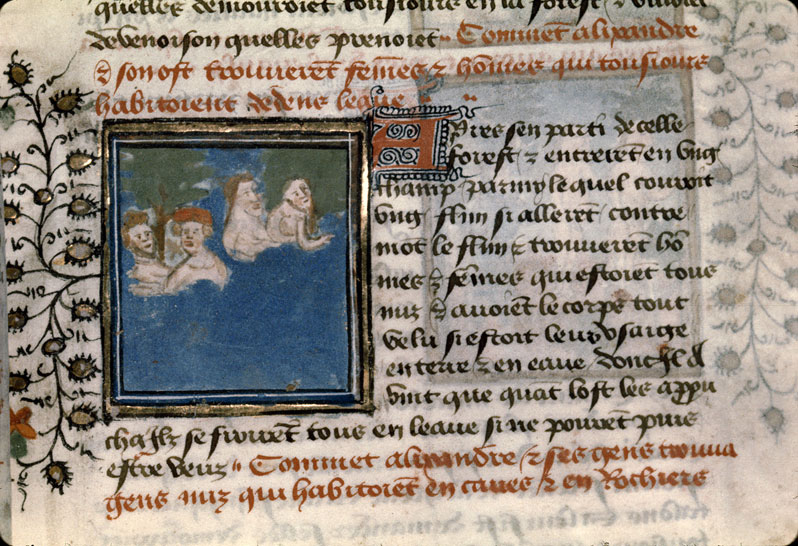 quelles demouroiēt tousiours en la forest & viuoiēt
de venoison quelles prenoiēt Commēt alixandre
& son ost trouuerēt fem̄es & hōmes qui tousiours
habitoient dedens leaue
Apres sen parti de celle
forest & entrerēt en vng
champ parmy le quel couroit
vng flun si allerēt contre
mōt le flun & trouuerēt hō
mes & fēmes qui estoiēt tous
nuz & auoiēt le corps tout
velu si estoit leur vsaige
en terre & en eaue dont Il
vint que quāt lost les appu
cha Ilz se frirēt tous en leaue si ne pourēt puis
estre veuz Commēt alixandre & ses gens trouua
gens nuz qui habitoiēt en caues & en Rochiers